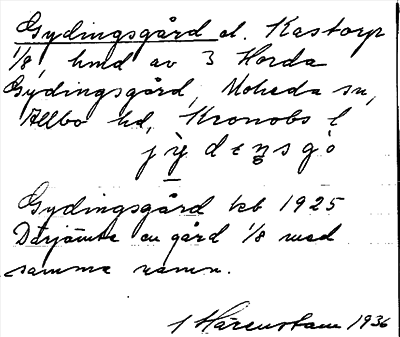 Gydingsgård el. Kastorp
1/8, hmd av 3 Horda
Gydingsgård, Moheda sn,
Allbo hd, Kronobs l
Gydingsgård kb 1925
Därjämte en gård 1/8 med
samma namn.
Härenstam 1936